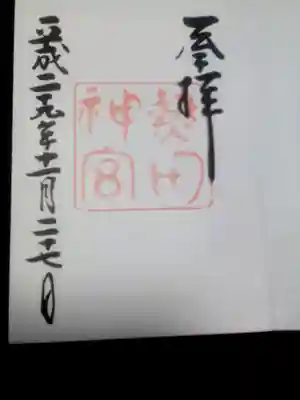 奉拝
熱田
神宮
平成二十九年十一月二十七日